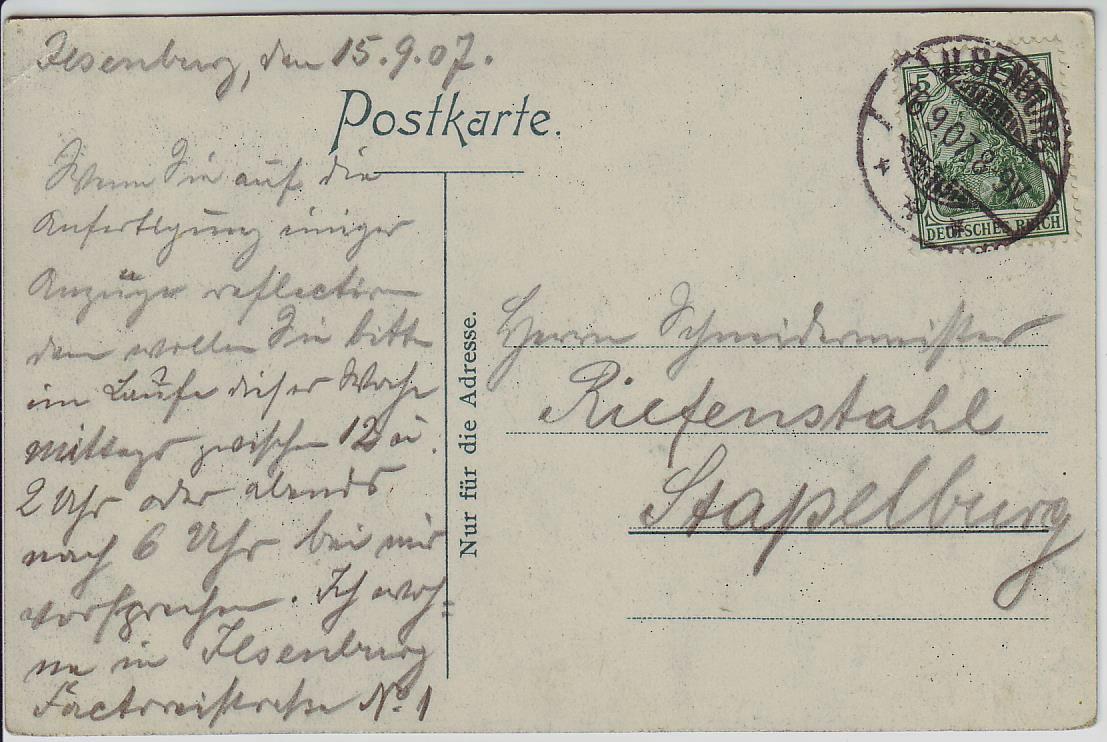 Ilsenburg, den 15.9.07.
Postkarte.
ILSENBURG
16.9.07.8-9V
5
DEUTSCHES REICH
Wenn Sie auf die
Anfertigung einiger
Anzüge reflectie
dann wollen Sie bitte
im Laufe dieser Woche
mittags zwischen 12 u.
2 Uhr oder abends
nach 6 Uhr bei mir
vorsprechen. Ich woh=
ne in Ilsenburg
Factoreistrasse No. 1
Nur für die Adresse.
Herrn Schneidermeister
Riefenstahl
Stapelburg